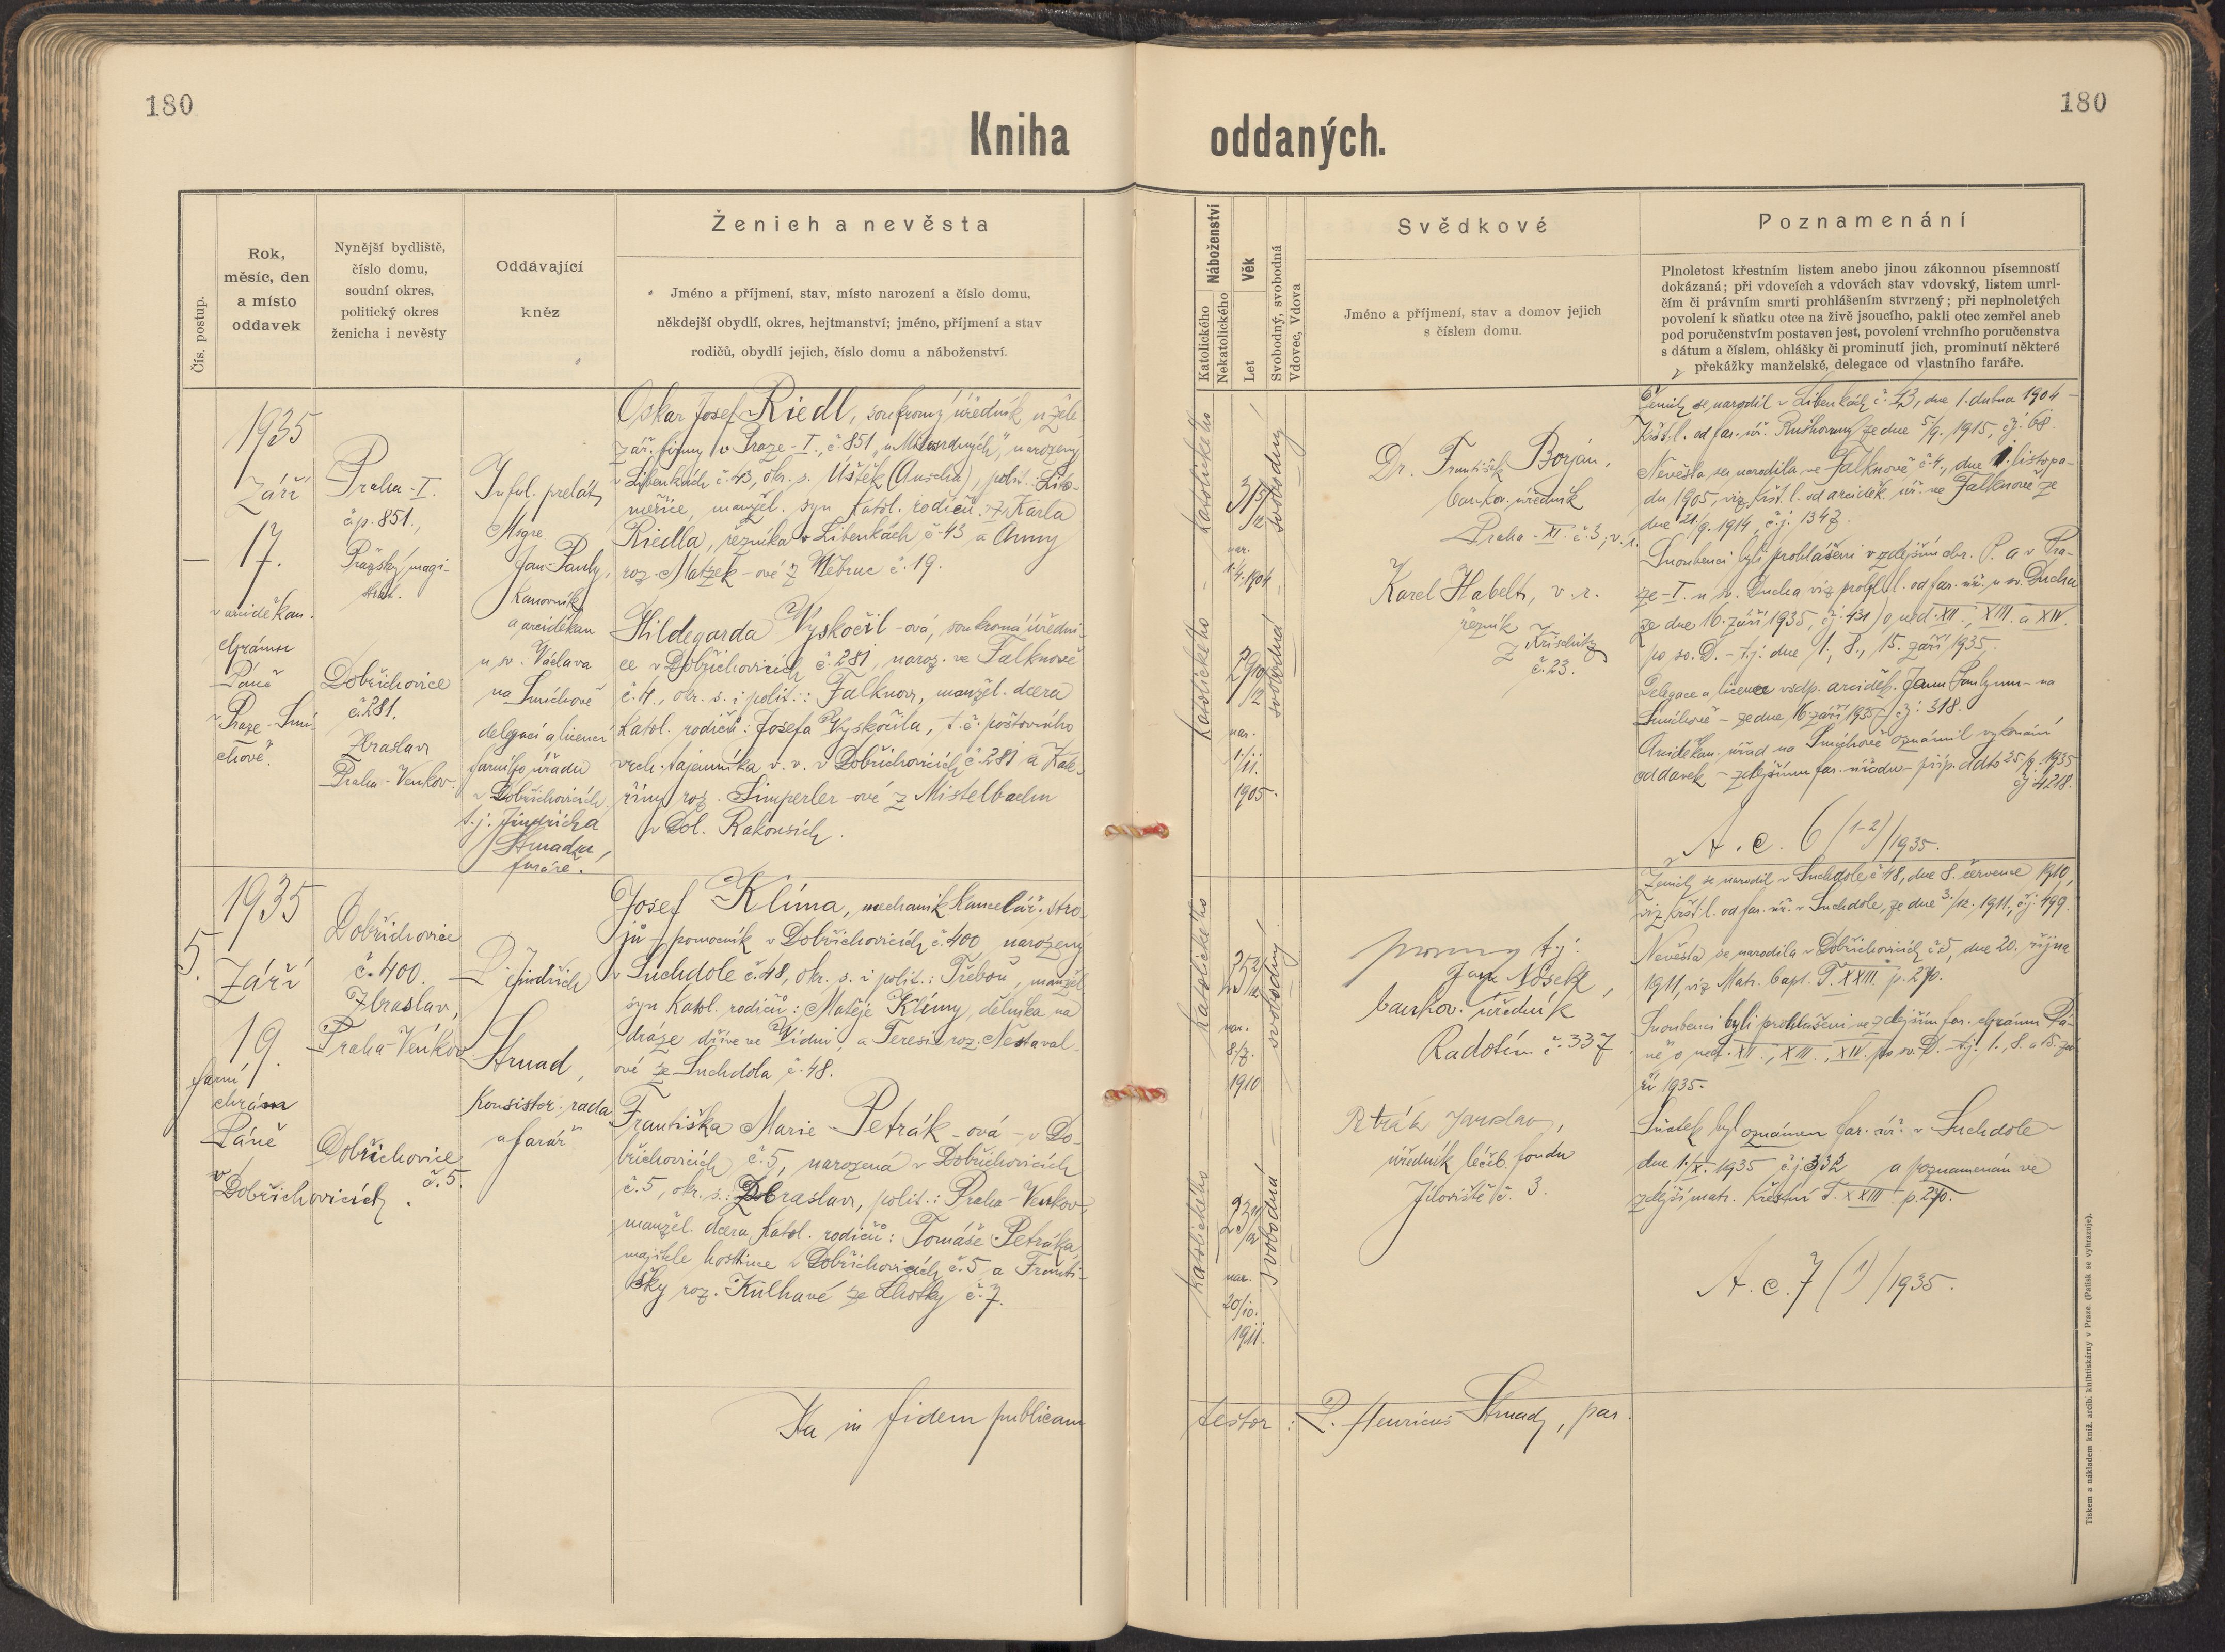 180
180
Kniha
oddaných.
Čís. postup.
Rok,
měsíc, den
a místo
oddavek
Nynější bydliště,
číslo domu,
soudní okres,
politický okres
ženicha i nevěsty
Oddávající
kněz
Ženich a nevěsta
Jméno a příjmení, stav, místo narození a číslo domu,
někdejší obydlí, okres, hejtmanství; jméno, příjmení a stav
rodičů, obydlí jejich, číslo domu a náboženství.
1935
Září
17.
v arciděkan.
chrámu
Páně
v Praze-Smí-
chově.
Praha-I.
č.p. 851.,
Pražský magi-
strát.
Dobřichovice
č. 281.
Zbraslav
Praha-Venkov.
Inful. prelát
Msgre.
Jan Pauly,
kanovník
a arciděkan
u sv. Václava
na Smíchově
delegací a licencí
farního úřadu
v Dobřichovicích
t.j. Jindřicha
Strnada,
faráře.
Oskar Josef Riedl, soukromý úředník u žele-
zář. firmy v Praze-I., č. 851 narozený
v Liběnkách č. 43, okr. s. Úštěk (Auscha), polit.: Lito-
měřice, manžel. syn katol. rodičů: Karla
Riedla, řezníka v Liběnkách č. 43, a Anny
roz. Matzek-ové z č. 19.
Hildegarda Vyskočil-ová, soukromá úředni-
ce v Dobřichovicích č. 281, naroz. ve Falknově
č. 4., okr. s. i polit.: Falknov, manžel. dcera
katol. rodičů: Josefa Vyskočila, t.č. poštovního
vrch. tajemníka v. v. v Dobřichovicích č. 281 a Kate-
řiny roz. Simperler-ové z Mistelbachu
v Dol. Rakousích.
5.
1935
Září
19.
farní
chrám
Páně
v
Dobřichovicích.
Dobřichovice
č. 400.
Zbraslav,
Praha-Venkov.
Dobřichovice
č. 5.
P. Jindřich
Strnad,
konsistor. rada
a farář
Josef Klíma, mechanik kancelář. stro-
jů - pomocník v Dobřichovicích č. 400, narozený
v Suchdole č. 48, okr. s. i polit.: Třeboň, manžel.
syn katol. rodičů: Matěje Klímy, dělníka na
dráze dříve ve Vídni, a Teresie roz. Nestaval-
ové ze Suchdola č. 48.
Františka Marie Petrák-ová - v Do-
břichovicích č. 5, narozená v Dobřichovicích
č. 5, okr. s.: Zbraslav, polit.: Praha-Venkov,
manžel. dcera katol. rodičů: Tomáše Petráka,
majitele hostince v Dobřichovicích č. 5 a Franti-
šky roz. Kulhavé ze Lhotky č. 7.
Ita in fidem publicam
Náboženství
Katolického
Nekatolického
Věk
Let
Svobodný, svobodná
Vdovec, Vdova
Svědkové
Jméno a příjmení, stav a domov jejich
s číslem domu.
Poznamenání
Plnoletost křestním listem anebo jinou zákonnou písemností
dokázaná; při vdovcích a vdovách stav vdovský, listem umrl-
čím či právním smrti prohlášením stvrzený; při neplnoletých
povolení k sňatku otce na živě jsoucího, pakli otec zemřel aneb
pod poručenstvím postaven jest, povolení vrchního poručenstva
s dátum a číslem, ohlášky či prominutí jich, prominutí některé
překážky manželské, delegace od vlastního faráře.
katolického
31 5/12
nar.
1./4. 1904
svobodný
katolického
29 10/12
nar.
1./
11.
1905.
svobodná
Dr. František Borján,
bankov. úředník
Praha-XI. č. 3; v. r.
Karel Habelt, v. r.
řezník
č. 23.
Ženich se narodil v Liběnkách č. 43, dne 1. dubna 1904 -
křst. l. od far. úř. ze dne 5/9. 1915, čj: 68.
Nevěsta se narodila ve Falknově č. 4., dne 1. listopa-
du 1905, viz křst. l. od arciděk. úř. ve Falknově ze
dne 21/9. 1914, č.j. 1347.
Snoubenci byli prohlášeni v zdejším chr. P. a v Pra-
ze-I. u sv. Ducha viz prohl. l. od far. úř. u sv. Ducha
ze dne 16. září 1935, čj: 431) o ned. XII., XIII. a XIV.
po sv. D. - t.j: dne 1., 8., 15. září 1935.
Delegace a licence vsdp. arciděk. Janu Paulymu - na
Smíchově - ze dne 16. září 1935 - čj: 318.
Arciděkan. úřad na Smíchově oznámil vykonání
oddavek - zdejšímu far. úřadu - příp. ddto 25/9. 1935
čj 4218.
A. c. 6 (1-2)/1935.
katolického
25 2/12
nar.
8./7.
1910
svobodný
katolického
23 11/12
nar.
20/10.
1911.
svobodná
t.j:
Jan Nosek,
bankov. úředník
Radotín č. 337.
Petrák Jaroslav,
úředník léčeb. fondu
Jíloviště č. 3.
Ženich se narodil v Suchdole č. 48, dne 8. července 1910,
viz křst. l. od far. úř. v Suchdole, ze dne 3./12. 1911, čj: 499.
Nevěsta se narodila v Dobřichovicích č. 5, dne 20. října
1911, viz Matr. bapt. T. XXIII. p. 270.
Snoubenci byli prohlášeni ve zdejším far. chrámu Pá-
ně o ned. XII., XIII., XIV. po sv. D. - t.j. 1., 8. a 15. zá-
ří 1935.
Sňatek byl oznámen far. úř. v Suchdole
dne 1./X. 1935 č.j. 332 a poznamenán ve
zdejší matr. křestní T. XXIII p. 270.
A. c. 7 (1)/1935.
testor: P. Henricus Strnad, par.
Tiskem a nákladem kníž. arcib. knihtiskárny v Praze. (Patisk se vyhrazuje).